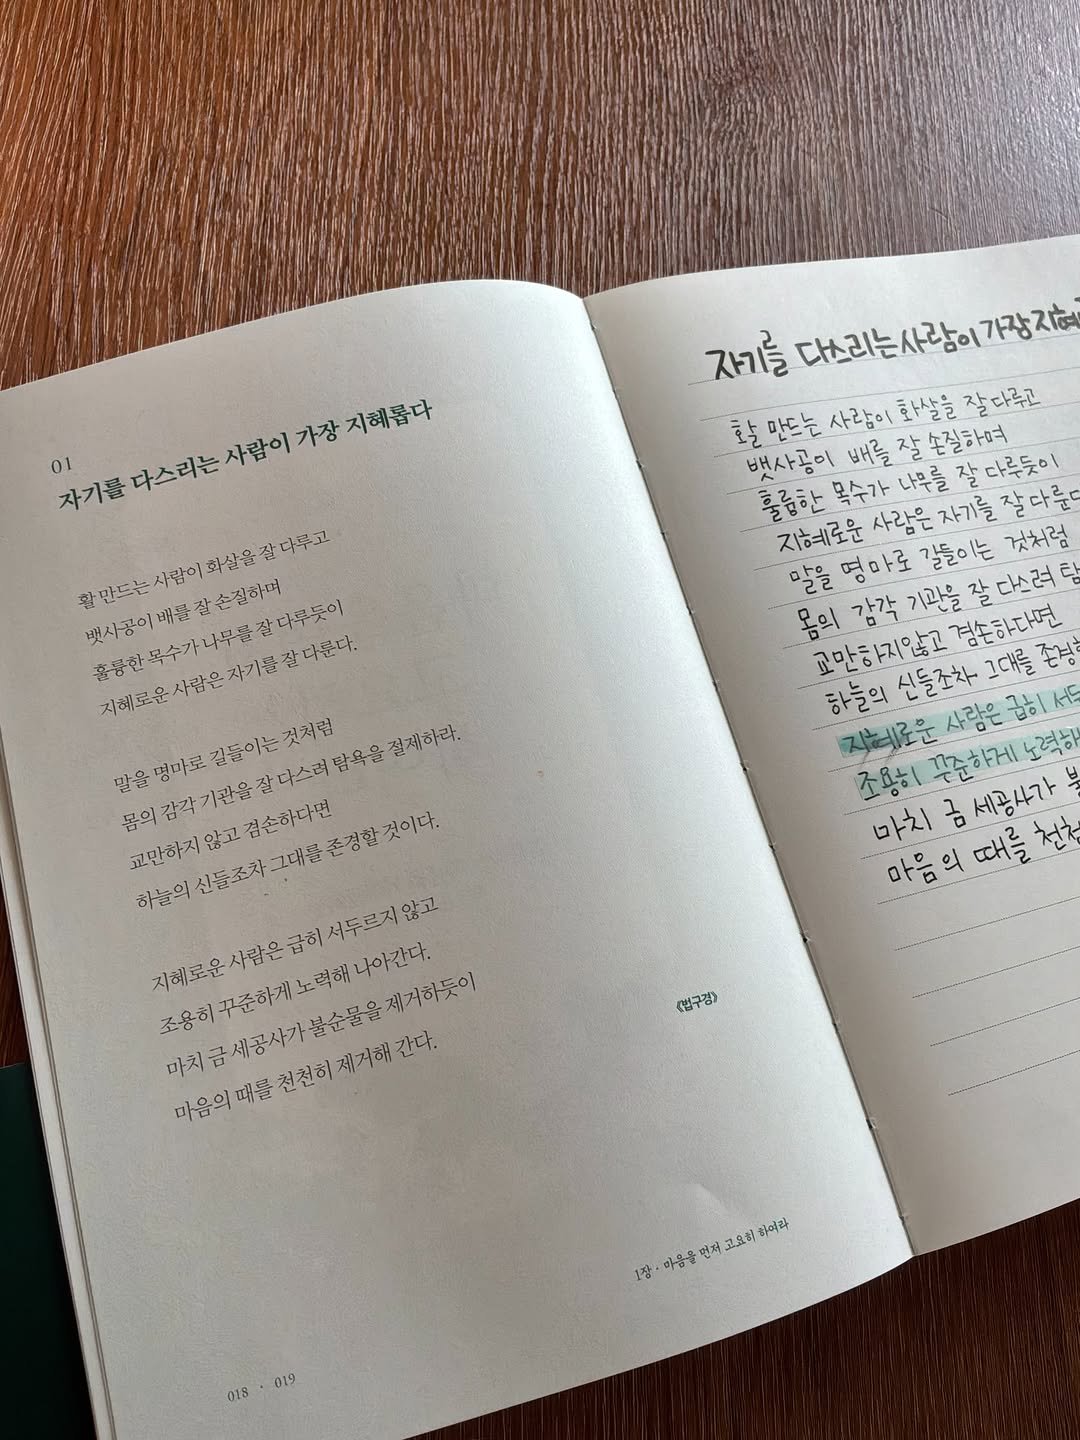 01
자기를 다스리는 사람이 가장 지혜롭다
활 만드는 사람이 화살을 잘 다루고
뱃사공이 배를 잘 손질하며
훌륭한 목수가 나무를 잘 다루듯이
지혜로운 사람은 자기를 잘 다룬다.
말을 명마로 길들이는 것처럼
몸의 감각 기관을 잘 다스려 탐욕을 절제하라.
교만하지 않고 겸손하다면
하늘의 신들조차 그대를 존경할 것이다.
지혜로운 사람은 급히 서두르지 않고
조용히 꾸준하게 노력해 나아간다.
마치 금 세공사가 불순물을 제거하듯이
마음의 때를 천천히 제거해 간다.
《법구경》
1장 · 마음을 먼저 고요히 하여라
018 · 019
자기를 다스리는 사람이 가장 지혜
활 만드는 사람이 화살을 잘 다루고
뱃사공이 배를 잘 손질하며
훌륭한 목수가 나무를 잘 다루듯이
지혜로운 사람은 자기를 잘 다룬다
말을 명마로 길들이는 것처럼
몸의 감각 기관을 잘 다스려 탐
교만하지 않고 겸손하다면
하늘의 신들조차 그대를 존경
지혜로운 사람은 급히 서두
조용히 꾸준하게 노력해
마치 금 세공사가 불
마음의 때를 천천